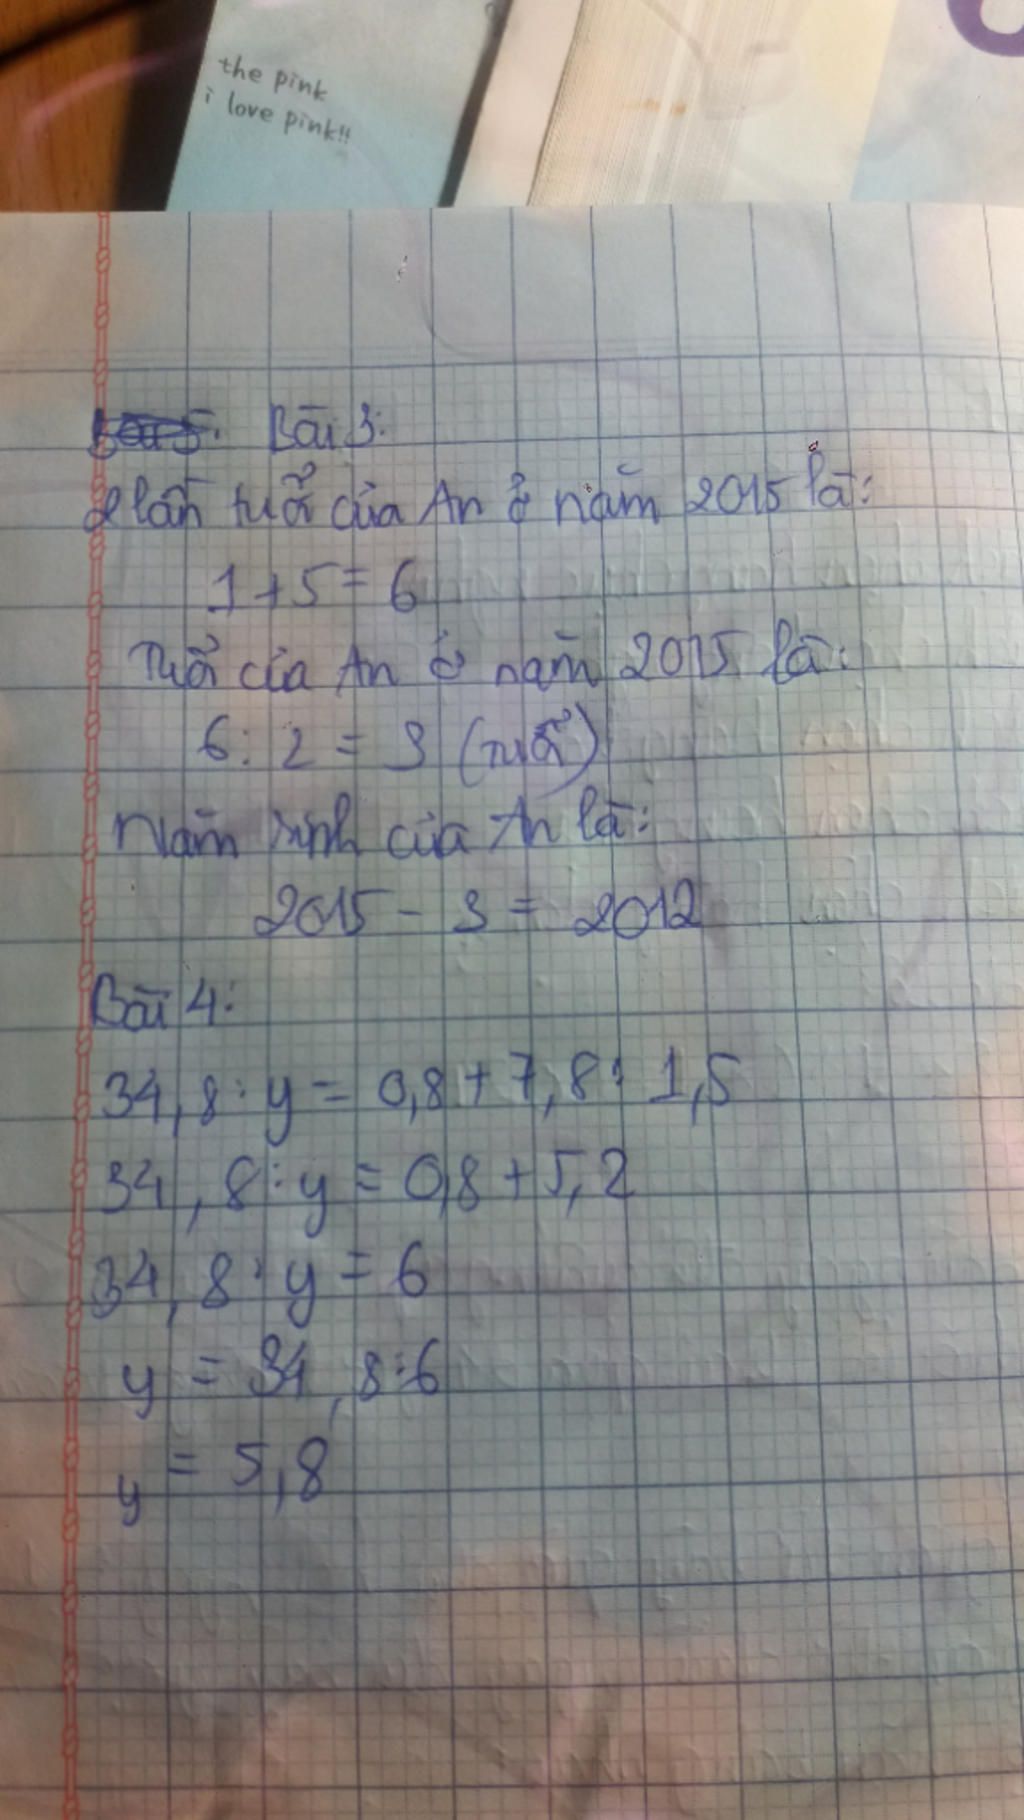 the pink
i love pink!!
Bài 3:
2 lần tuổi của An ở năm 2015 là:
1 + 5 = 6
Tuổi của An ở năm 2015 là:
6 : 2 = 3 (tuổi)
Năm sinh của An là:
2015 - 3 = 2012
Bài 4:
34,8 : y = 0,8 + 7,8 : 1,5
34,8 : y = 0,8 + 5,2
34,8 : y = 6
y = 34,8 : 6
y = 5,8